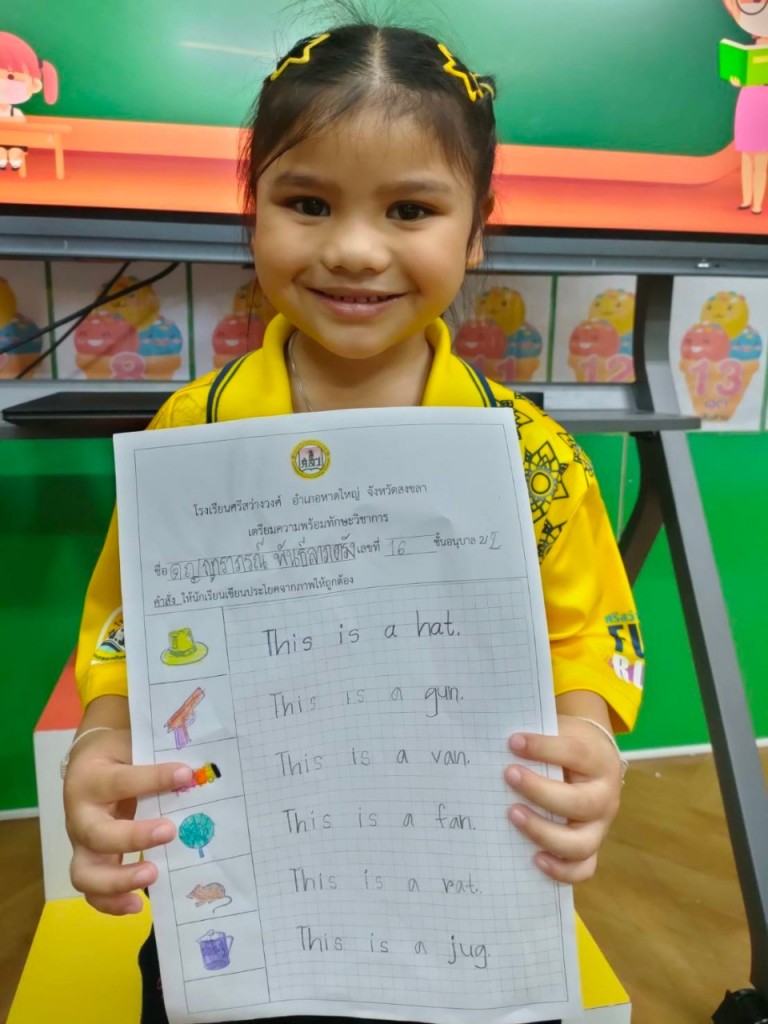 โรงเรียนศรีสว่างวงศ์ อำเภอหาดใหญ่ จังหวัดสงขลา
เตรียมความพร้อมทักษะวิชาการ
ชื่อ เลขที่ 16 ชั้นอนุบาล 2/2
คำสั่ง ให้นักเรียนเขียนประโยคจากภาพให้ถูกต้อง
This is a hat.
This is a gun.
This is a van.
This is a fan.
This is a rat.
This is a jug.
8
11
12
13